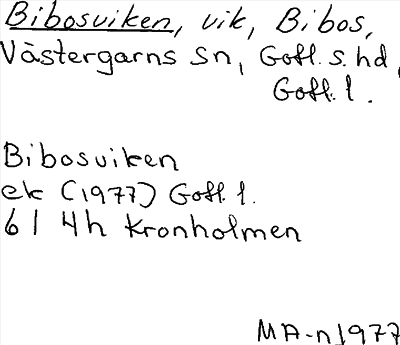 Bibosviken, vik, Bibos,
Västergarns sn, Gotl. s. hd,
Gotl. l.
Bibosviken
ek (1977) Gotl. l.
6 I 4h Kronholmen
MA-n 1977